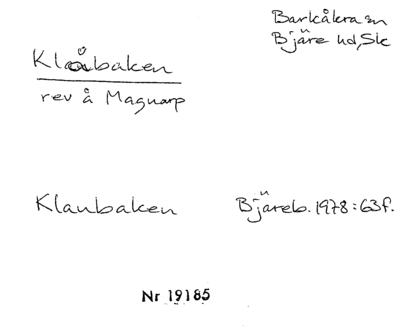 Barkåkra sn
Bjäre hd, Sk
Klåbaken
rev å Magnarp
Klanbaken
Bjäreb. 1978:63f.
Nr 19185